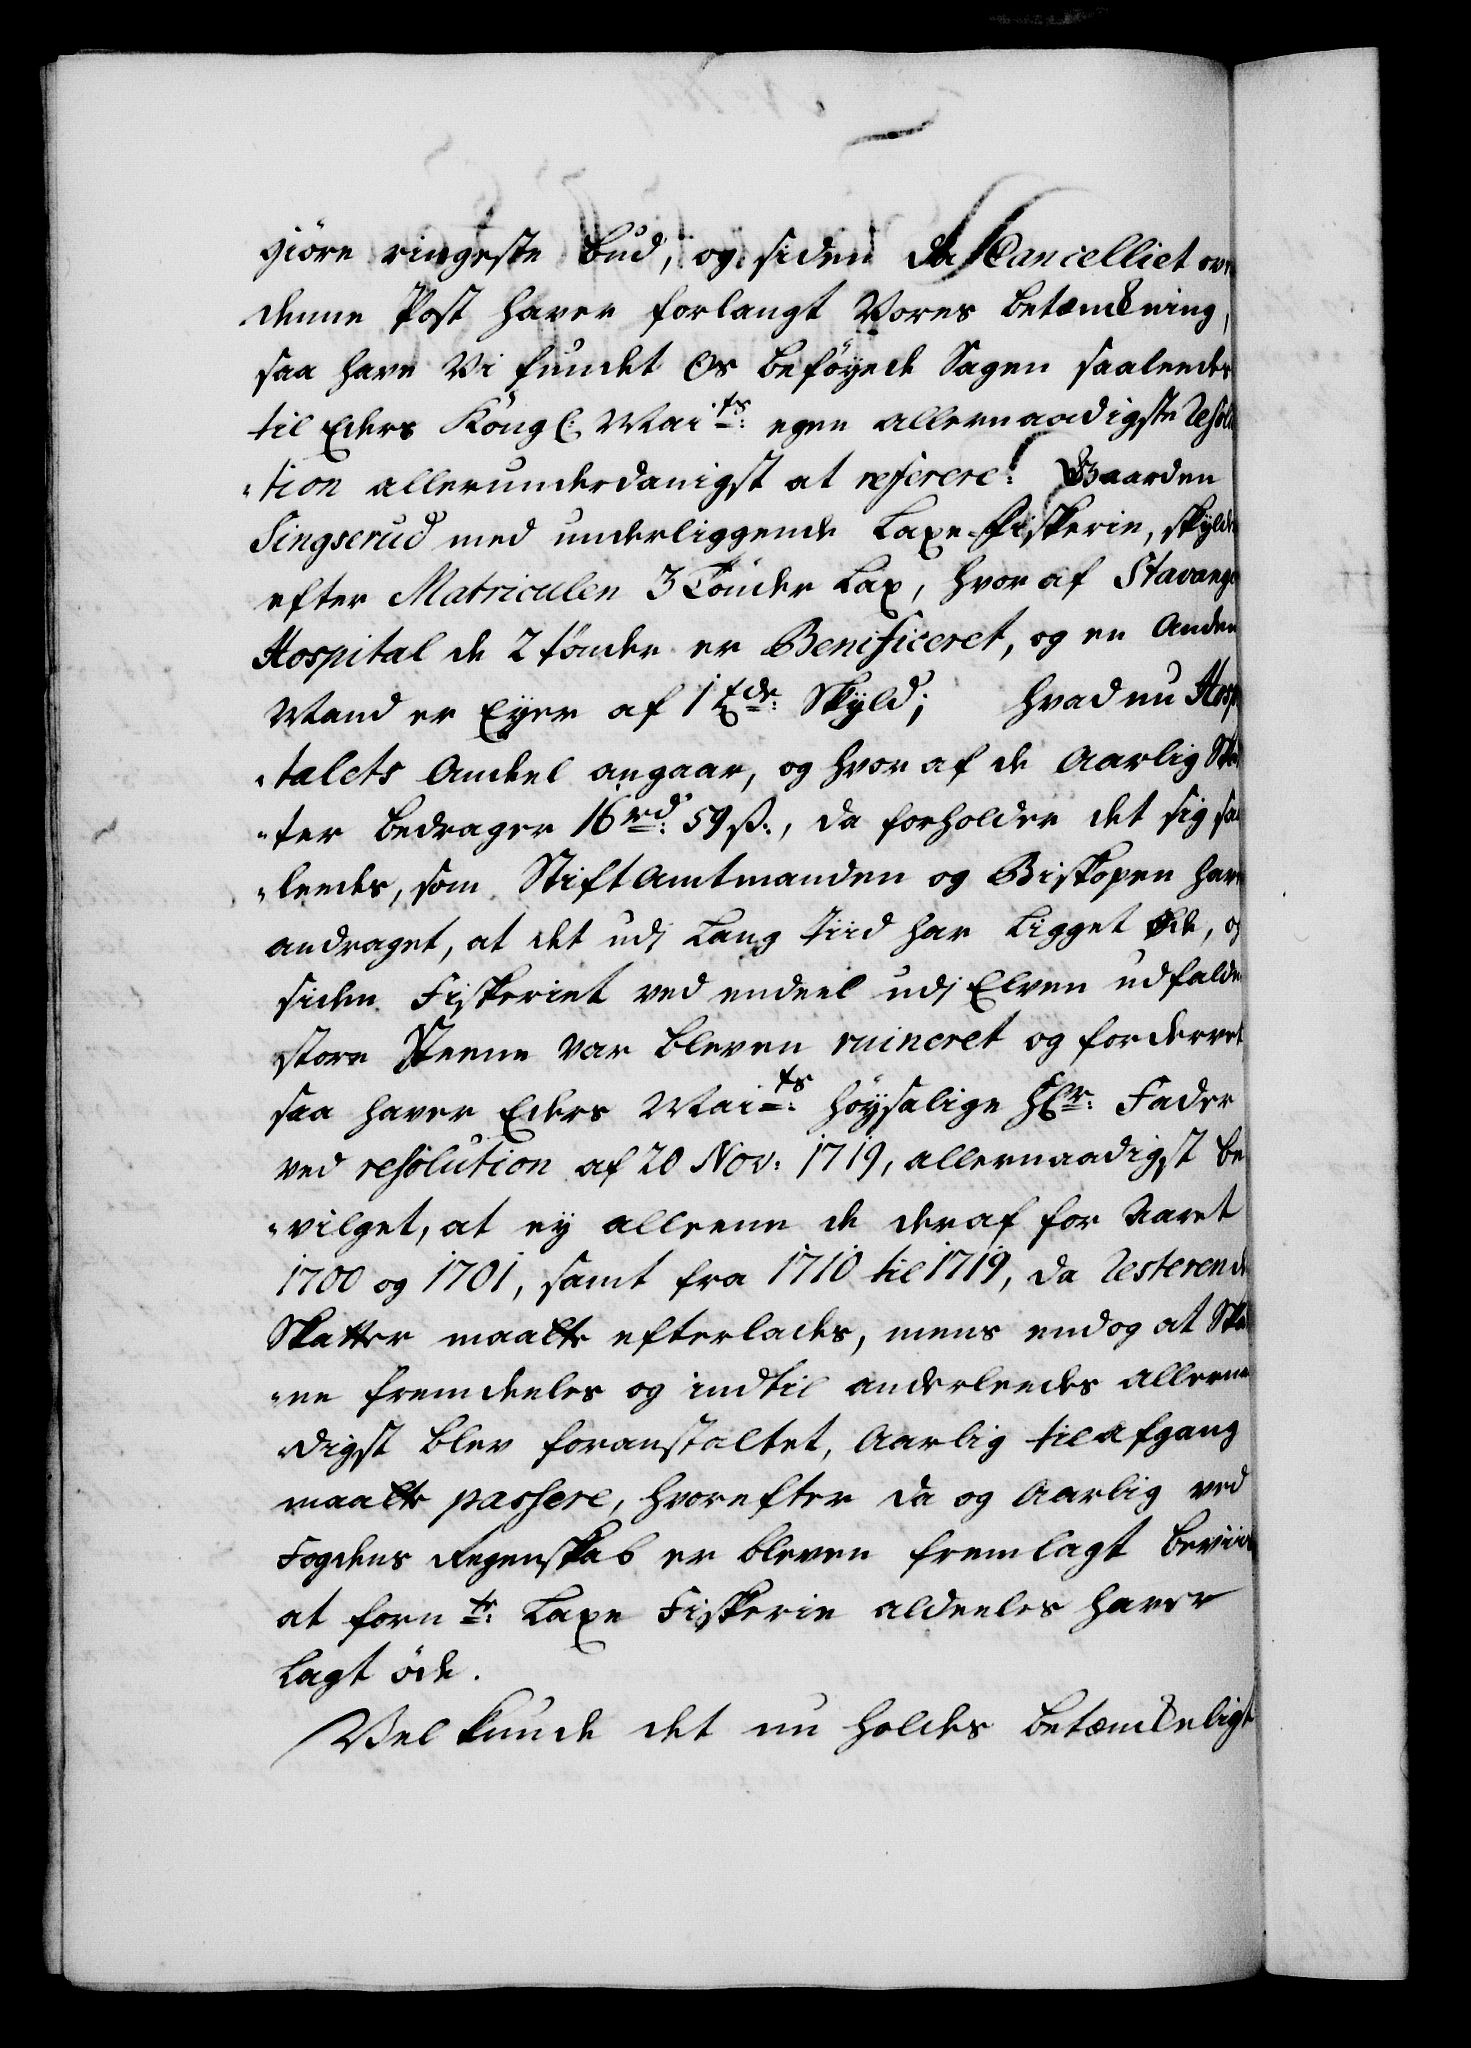 giöre ringeste bud, og siden da Cancelliet ov
denne Post haver forlangt Vores betænkning,
saa have Vi fundet Os beföyede Sagen saaleedes
til Eders Kongl: Mai:ts: egen allernaadigste Resolu
"tion allerunderdanigst at referere: Gaarden
Singserud med underliggende Laxe-Fiskerie, skylder
efter Matriculen 3 Tönder Lax, hvor af Stavanger
Hospital de 2 tönder er Benificeret, og en Anden
Mand er Eyer af 1 Tde: Skyld; hvad nu Hospi
"talets Andeel angaar, og hvor af de Aarlig Skat
"ter bedrager 16 rd: 59 ß:, da forholder det sig saa
"leedes, som StiftAmtmanden og Biskopen have
andraget, at det udj Lang tiid har Ligget öde, og
siden Fiskeriet ved endeel udj Elven udfaldne
store Steene var bleven ruineret og fordervet
saa haver Eders Mai:ts: höysalige Hr: Fader
ved resolution af 20 Nov: 1719, allernaadigst be
"vilget, at ey alleene de deraf for Aaret
1700 og 1701, samt fra 1710 til 1719, da Resterende
Skatter maatte efterlades, mens endog at Skat
"ne fremdeeles og indtil anderleedes allerna
"digst blev foranstaltet, Aarlig til afgang
maatte passere, hvorefter da og Aarlig ved
Fogdens Regenskab er bleven fremlagt beviis
at forn te: Laxe Fiskerie aldeeles haver
Lagt öde.
Vel kunde det nu holdes betænkeligt